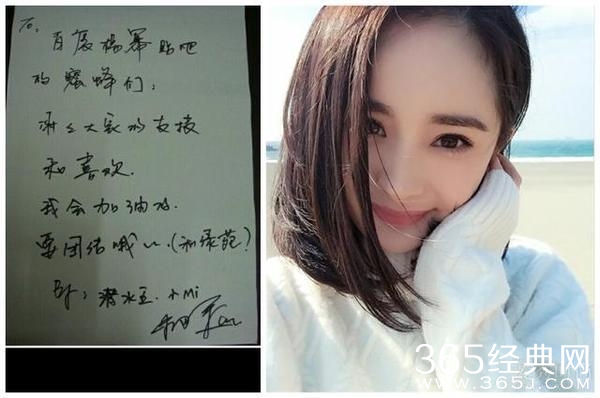 To.
百度杨幂贴吧
的蜜蜂们:
谢谢大家的支持
和喜欢.
我会加油的.
要团结哦~.(和绿葩?)
By: 潜水王.小Mi
365经典网
WWW.365J.COM